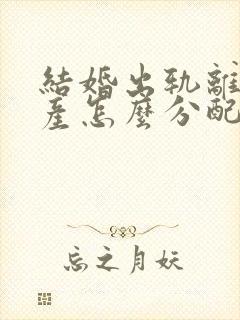 結婚出軌離
產怎麼分配
忘之月妖